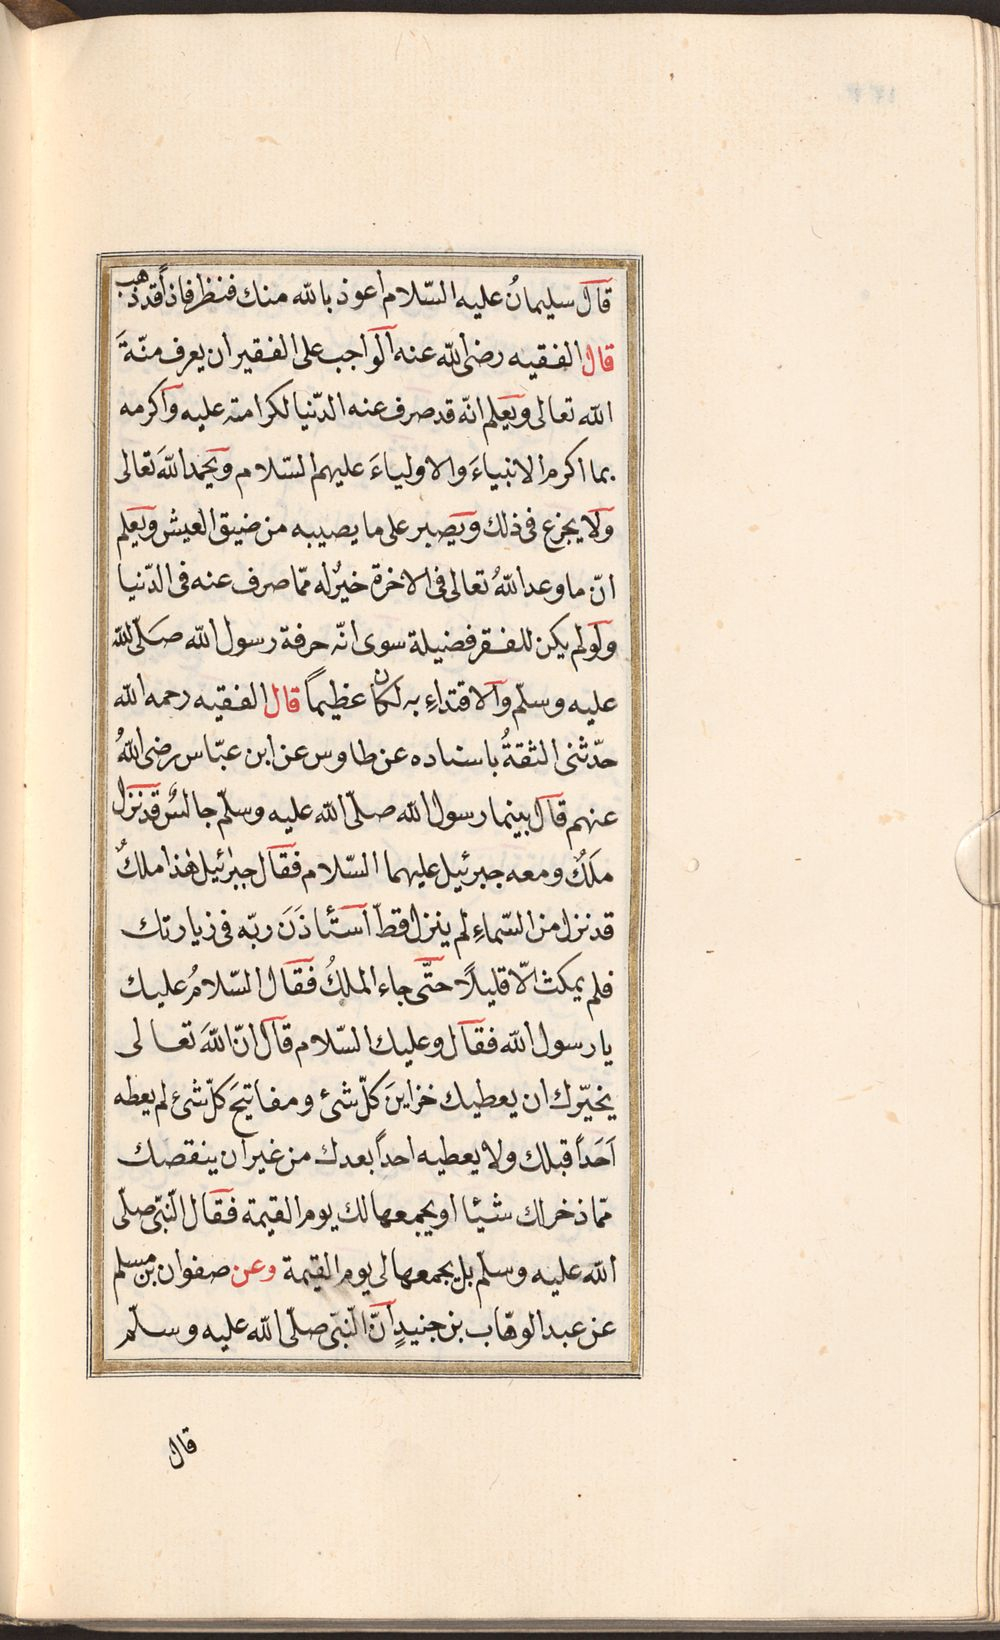 قال سليمانُ عليه السّلام اعوذ بالله منك فنظر فاذاً قد ذهب
قال الفقيه رضى الله عنه الواجب على الفقير ان يعرف منّةَ
الله تعالى ويعلم انّه قد صرف عنه الدّنيا لكرامته عليه واكرمه
بما اكرم الانبياءَ والاولياءَ عليهم السّلام ويحمد اللهَ تعالى
ولا يجزع فى ذلك ويصبر على ما يصيبه من ضيق العيش ويعلم
انّ ما وعد اللهُ تعالى فى الاخرة خيرٌ له ممّا صرف عنه فى الدّنيا
ولو لم يكن للفقر فضيلة سوى انّه حرفة رسول الله صلّى الله
عليه وسلّم والاقتداءِ به لكان عظيماً قال الفقيه رحمه الله
حدّثنى الثقةُ باسناده عن طاوس عن ابن عبّاس رضى اللهُ
عنهم قال بينما رسول الله صلّى الله عليه وسلّم جالسٌ قد نزل
ملَكٌ ومعه جبرئيل عليهما السّلام فقال جبرئيل هٰذا ملكٌ
قد نزل من السّماءِ لم ينزل قطّ استأذَنَ ربّه فى زيارتك
فلم يمكث الّا قليلًا حتّى جاء الملكُ فقال السّلامُ عليك
يا رسول الله فقال وعليك السّلام قال انّ اللهَ تعالى
يخيّرك ان يعطيك خزاينَ كلّ شئ ومفاتيحَ كلّ شئ لم يعطه
اَحَداً قبلك ولا يعطيه احداً بعدك من غير ان ينقصك
ممّا ذخر لك شيئا او يجمعها لك يوم القيمة فقال النّبىّ صلّى
الله عليه وسلّم بل يجمعها لى يوم القيمة وعن صفوان بن مسلم
عن عبد الوهّاب بن جنيدٍ انّ النّبىّ صلّى الله عليه وسلّم
قال